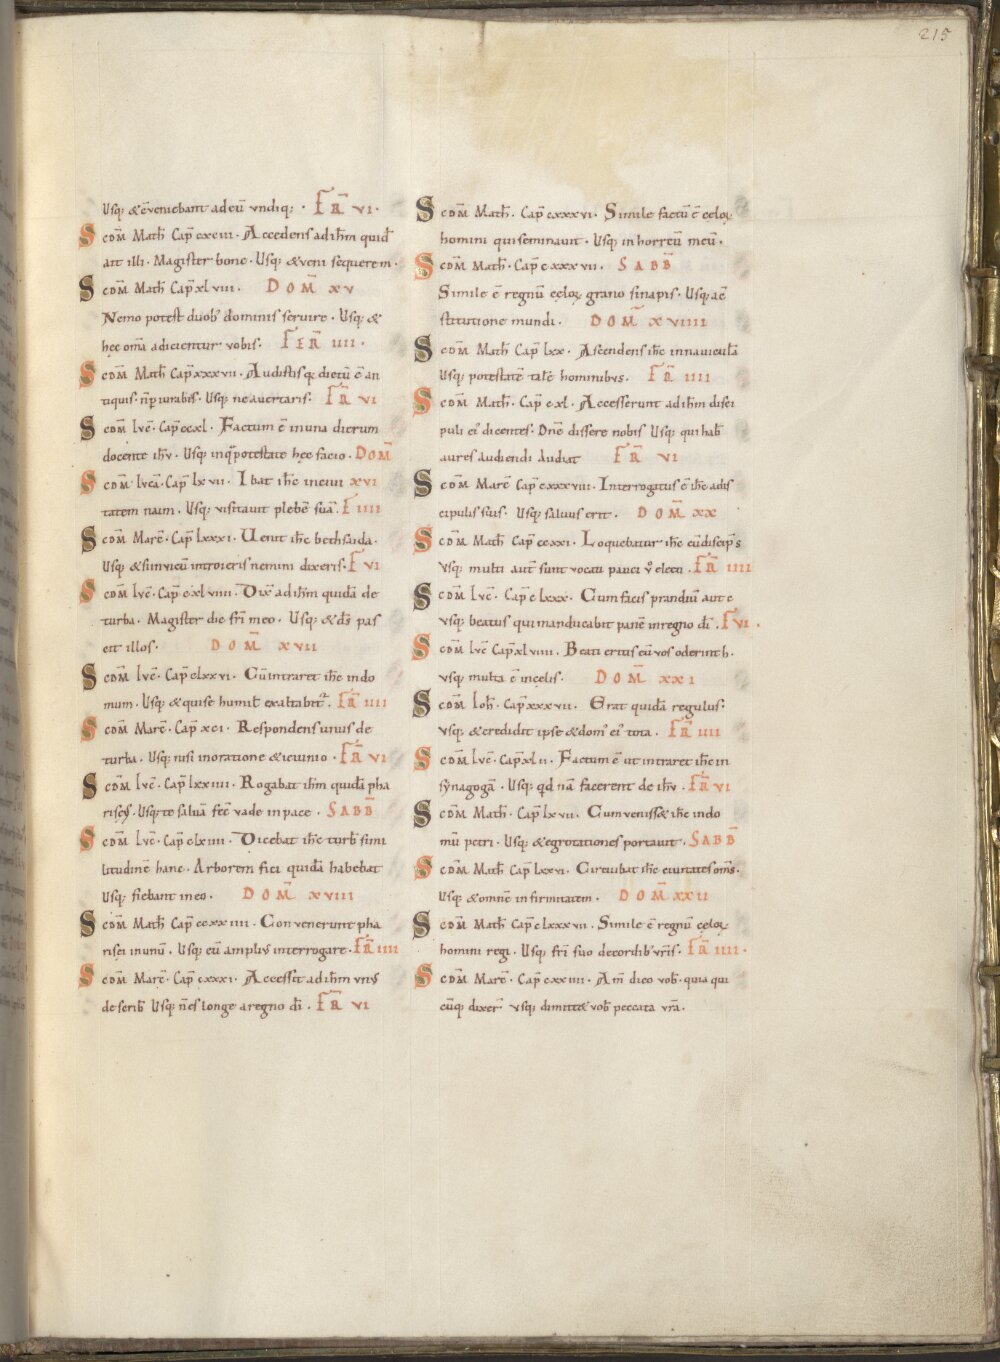 215
Usq; & c̄veniebant ad eū undiq; · FR̄ VI ·
S cdm̄ Math̄ Cap̄ cxciii · Accedens ad ih̄m quid̄
ait illi · Magister bone · Usq; & veni sequere m ·
S cdm̄ Math̄ Cap̄ xl viii · DOM̄ XV
Nemo potest duob; dominis servire · Usq; &
hec om̄a adicientur vobis · FER̄ IIII ·
S cdm̄ Math̄ Cap̄ xxxvii · Audistis q; dictū ē an
tiquis · n̄ p̄iurabis · Usq; ne avertaris · FR̄ VI
S cdm̄ lvc̄ · Cap̄ ccxl · Factum ē in una dierum
docente ih̄v · Usq; in q̄ potestate hec facio · DOM̄
S cdm̄ lvcā · Cap̄ lxvii · Ibat ih̄c in civi XVI
tatem naim · Usq; visitavit plebē suā · F IIII
S cdm̄ Marc̄ · Cap̄ lxxxi · Venit ih̄c bethsaida ·
Usq; & si in vicū introieris nemini dixeris · F VI
S cdm̄ lvc̄ · Cap̄ cxl viiii · Dix̄ ad ih̄m quidā de
turba · Magister dic fr̄i meo · Usq; & d̄s pas
cit illos · DOM̄ XVII
S cdm̄ lvc̄ · Cap̄ clxxvi · Cū intraret ih̄c in do
mum · Usq; & qui se humil̄ exaltabit̄ · FR̄ IIII
S cdm̄ Marc̄ · Cap̄ xci · Respondens unus de
turba · Usq; nisi in oratione & ieiunio · FR̄ VI
S cdm̄ lvc̄ · Cap̄ lxxiiii · Rogabat ih̄m quidā pha
riseꝰ · Usq; te salvā fec̄ vade in pace · SABB̄
S cdm̄ lvc̄ · Cap̄ clxiiii · Dicebat ih̄c turb̄ simi
litudinē hanc · Arborem fici quidā habebat
Usq; fiebant in eo · DOM̄ XVIII
S cdm̄ Math̄ Cap̄ ccxxiiii · Convenerunt pha
risei in unū · Usq; eū ampliꝰ interrogare · FR̄ IIII
S cdm̄ Marc̄ · Cap̄ cxxxi · Accessit ad ih̄m unꝰ
de scrib̄ Usq; n̄ es longe a regno dī · FR̄ VI
S cdm̄ Math̄ · Cap̄ cxxxvi · Simile factū ē cęloꝝ
homini qui seminavit · Usq; in horreū meū ·
S cdm̄ Math̄ · Cap̄ cxxxvii · SABB̄
Simile ē regnū cęloꝝ grano sinapis · Usq; a c̄
stitutione mundi · DOM̄ XVIIII
S cdm̄ Math̄ Cap̄ lxx · Ascendens ih̄c in naviculā
Usq; potestatē talē hominibus · FR̄ IIII
S cdm̄ Math̄ · Cap̄ cxl · Accesserunt ad ih̄m disci
puli eiꝰ dicentes · Dn̄e dissere nobis Usq; qui hab̄
aures audiendi audiat FR̄ VI
S cdm̄ Marc̄ Cap̄ cxxxviii · Interrogatus ē ih̄c a dis
cipulis suis · Usq; salvus erit · DOM̄ XX
S cdm̄ Math̄ Cap̄ ccxxi · Loquebatur ih̄c cū discip̄s
Vsq; multi aut̄ sunt vocati pauci v̊ electi · FR̄ IIII
S cdm̄ lvc̄ · Cap̄ clxxx · Cum facis prandiū aut c
vsq; beatus qui manducabit panē in regno dī · F VI ·
S cdm̄ lvc̄ Cap̄ xl viiii · Beati eritis cū vos oderint h ·
vsq; multa ē in celis · DOM̄ XXI
S cdm̄ Ioh̄ · Cap̄ xxxvii · Erat quidā regulus ·
vsq; & credidit ipse & domꝰ eiꝰ tota · FR̄ IIII
S cdm̄ lvc̄ · Cap̄ xl ii · Factum ē ut intraret ih̄c in
synagogā · Usq; qd nā facerent de ih̄v · FR̄ VI
S cdm̄ Math̄ · Cap̄ lxvii · Cum veniss& ih̄c in do
mū petri · Usq; & egrotationes portavit · SABB̄
S cdm̄ Math̄ Cap̄ lxxvi · Circuibat ih̄c civitates om̄s ·
Usq; & omnē infirmitatem · DOM̄ XXII
S cdm̄ Math̄ Cap̄ clxxxvii · Simile ē regnū cęloꝝ
homini regi · Usq; fr̄i suo de cordib; vr̄is · FR̄ IIII ·
S cdm̄ Marc̄ · Cap̄ cxxiiii · Am̄ dico vob̄ · quia qui
cūq; dixer̄ vsq; dimitt& vob̄ peccata vr̄a ·